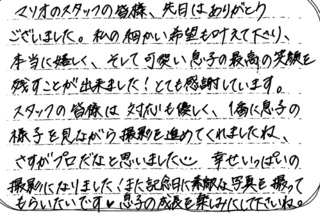 マリオのスタッフの皆様、先日はありがとう
ございました。私の細かい希望も叶えて下さり、
本当に嬉しく、そして可愛い息子の最高の笑顔を
残すことが出来ました！とても感謝しています。
スタッフの皆様は対応も優しく、1番に息子の
様子を見ながら撮影を進めてくれましたね、
さすがプロだなと思いました 幸せいっぱいの
撮影になりました！また記念日に素敵な写真を撮って
もらいたいです♥息子の成長を楽しみにして下さいね。